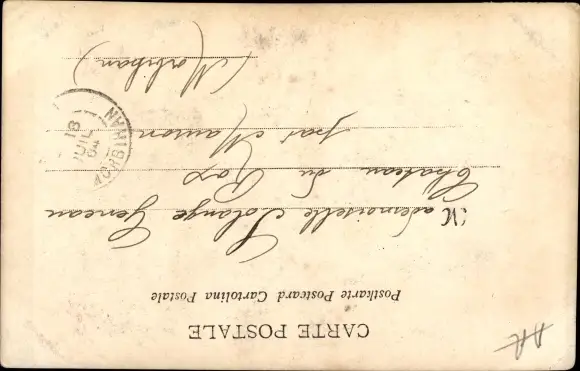 CARTE POSTALE
Postkarte Postcard Cartolina Postale
Mademoiselle Solange Geneau
Château du Roz
par Mauron
(Morbihan)
18
JUIL
04
MORBIHAN